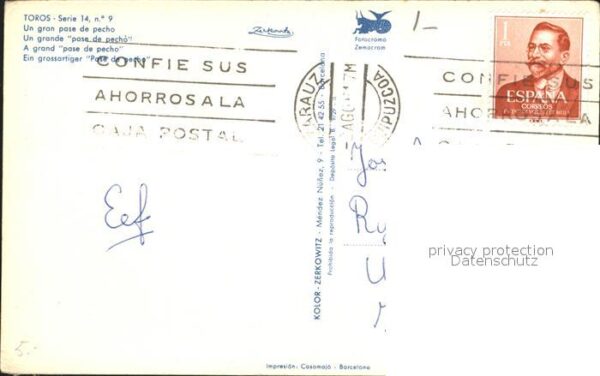 TOROS - Serie 14, n.º 9
Un gran pase de pecho
Un grande "pase de pecho"
A grand "pase de pecho"
Ein grossartiger "Pase de pecho"
Zerkowitz
Fotocromo
Zemacrom
1/-
1
PTA
ESPAÑA
CORREOS
CONFIE SUS
AHORROS A LA
CAJA POSTAL
CONFIE SUS
AHORROS A LA
Eef
KOLOR-ZERKOWITZ - Méndez Núñez, 9 - Tel. 21 42 55 - Barcelona
Prohibida la reproducción - Depósito Legal B.
privacy protection
Datenschutz
5.-
Impresión: Casamajó - Barcelona